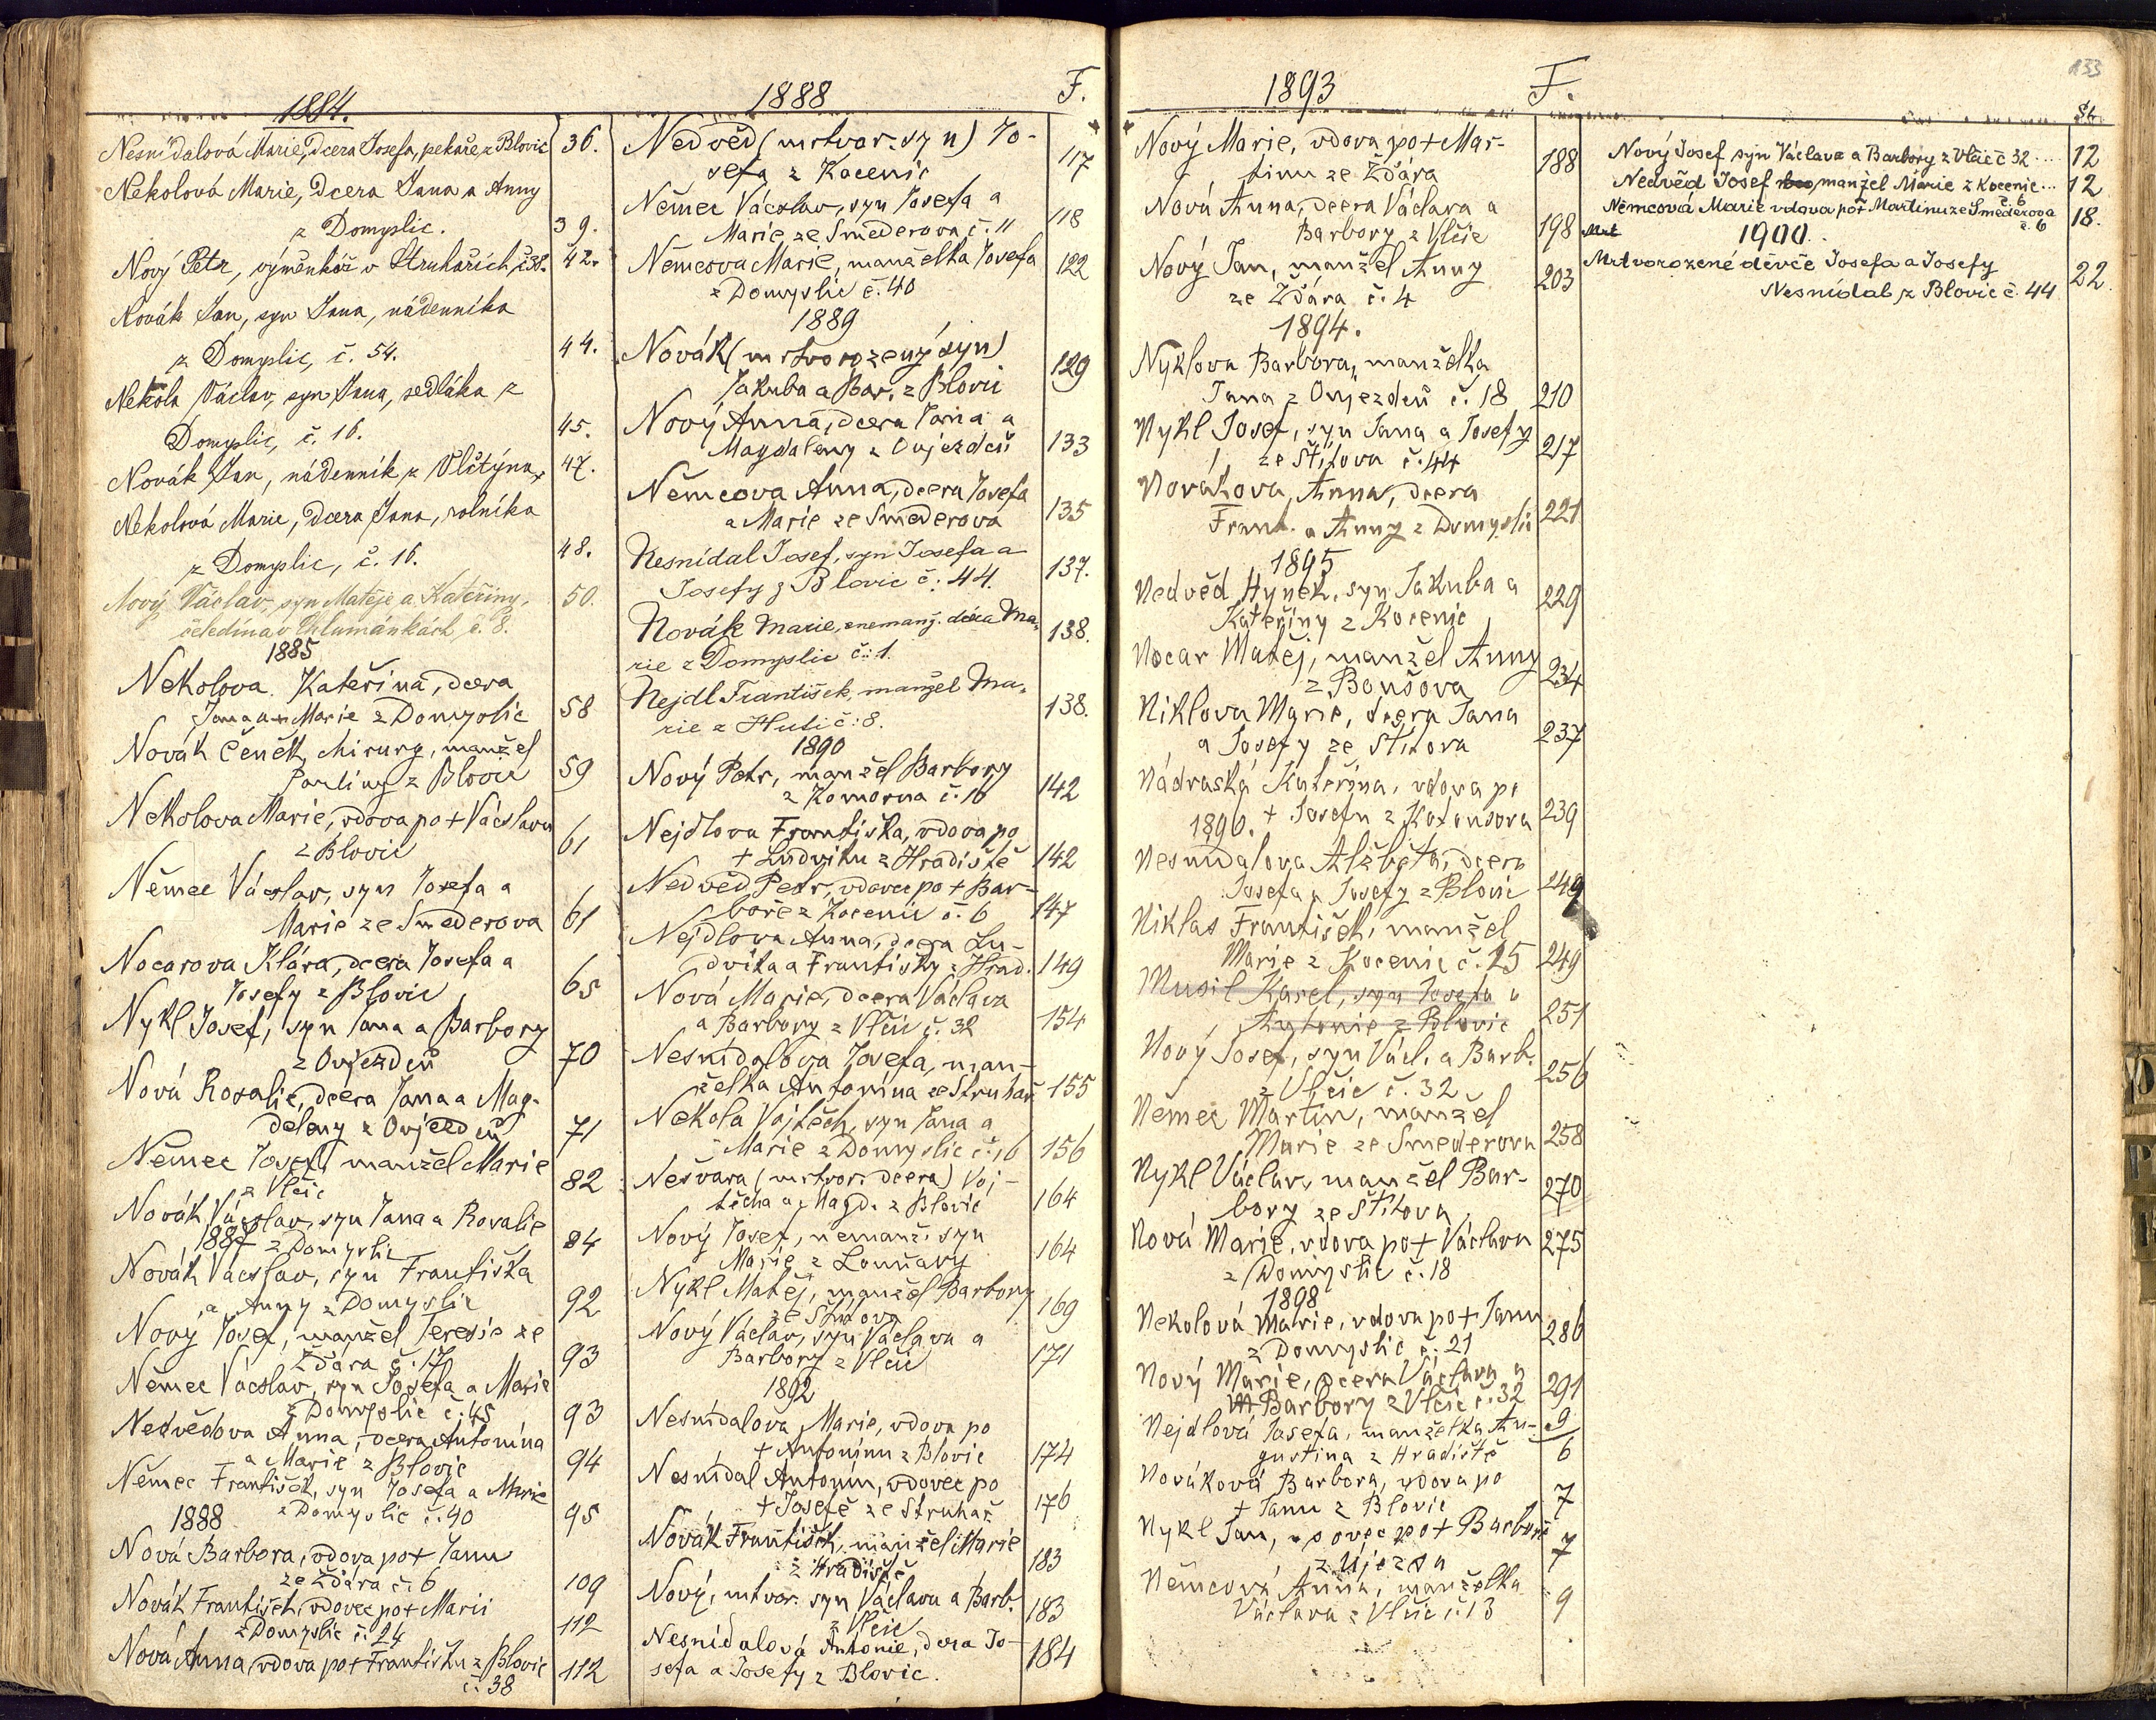 1884.
Nesnídalová Marie, dcera Josefa, pekaře z Blovic 36.
Nekolová Marie, dcera Jana a Anny
z Domyslic. 39.
Nový Petr, výměnkář v Struhařích č. 38. 42.
Novák Jan, syn Jana, nádenníka
z Domyslic, č. 54. 44.
Nekola Václav, syn Jana, sedláka z
Domyslic, č. 16. 45.
Novák Jan, nádenník z Vlčtýna, 47.
Nekolová Marie, dcera Jana, rolníka
z Domyslic, č. 16. 48.
Nový Václav, syn Matěje a Kateřiny, 50.
čeledína v Chlumánkách, č. 8.
1885
Nekolova Kateřina, dcera
Jana a Marie z Domyslic 58
Novák Čeněk, chirurg, manžel
Pauliny z Blovic 59
Nekolova Marie, vdova po + Václavu
z Blovic 61
Němec Václav, syn Josefa a
Marie ze Smederova 61
Nocarova Klára, dcera Josefa a
Josefy z Blovic 65
Nykl Josef, syn Jana a Barbory
z Oujezdců 70
Nová Rosalie, dcera Jana a Mag-
daleny z Oujezdců 71
Němec Josef, manžel Marie
z Vlčic 82
Novák Václav, syn Jana a Rosalie
1887 z Domyslic 84
Novák Václav, syn Františka
a Anny z Domyslic 92
Nový Josef, manžel Teresie ze
Ždára č. 17 93
Němec Václav, syn Josefa a Marie
z Domyslic č. 45 93
Nedvědova Anna, dcera Antonína
a Marie z Blovic 94
Němec František, syn Josefa a Marie
1888 z Domyslic č. 40 95
Nová Barbora, vdova po + Janu
ze Ždára č. 6 109
Novák František, vdovec po + Marii
z Domyslic č. 24 112
Nová Anna, vdova po + Františku z Blovic 112
č. 38
1888 F.
Nedvěd (mrtvor. syn) Jo-
sefa z Kocenic 117
Němec Václav, syn Josefa a
Marie ze Smederova č. 11 118
Němcova Marie, manželka Josefa 122
z Domyslic č. 40
1889
Novák (mrtvorozený syn)
Jakuba a Bar. z Blovic 129
Nový Anna, dcera Jana a
Magdaleny z Oujezdců 133
Němcova Anna, dcera Josefa
a Marie ze Smederova 135
Nesnídal Josef, syn Josefa a
Josefy z Blovic č. 44. 137.
Novák Marie, nemanž. dcera Ma- 138.
rie z Domyslic č: 1.
Nejdl František, manžel Ma- 138.
rie z Huti č: 8.
1890
Nový Petr, manžel Barbory
z Komorna č. 16 142
Nejdlova Františka, vdova po
+ Ludvíku z Hradiště 142
Nedvěd Petr, vdovec po + Bar-
boře z Kocenic č. 6 147
Nejdlova Anna, dcera Lu-
dvíka a Františky z Hrad. 149
Nová Marie, dcera Václava
a Barbory z Vlčic č. 32 154
Nesnídalova Josefa, man-
želka Antonína ze Struhař 155
Nekola Vojtěch, syn Jana a
Marie z Domyslic č. 16 156
Nešvara (mrtvor. dcera) Voj-
těcha a Magd. z Blovic 164
Nový Josef, nemanž. syn
Marie z Louňavy 164
Nykl Matěj, manžel Barbory
ze Štítova 169
Nový Václav, syn Václava a
Barbory z Vlčic 171
1892
Nesnídalova Marie, vdova po
+ Antonínu z Blovic 174
Nesnídal Antonín, vdovec po
+ Josefě ze Struhař 176
Novák František, manžel Marie
z Hradiště 183
Nový, mrtvor. syn Václava a Barb.
z Vlčic 183
Nesnídalová Antonie, dcera Jo-
sefa a Josefy z Blovic. 184
1893 F.
Nový Marie, vdova po + Mar-
tinu ze Ždára 188
Nová Anna, dcera Václava a
Barbory z Vlčic 198
Nový Jan, manžel Anny
ze Ždára č. 4 203
1894.
Nyklova Barbora, manželka
Jana z Oujezdců č. 18 210
Nykl Josef, syn Jana a Josefy
ze Štítova č. 44 217
Novákova Anna, dcera
Frant. a Anny z Domyslic 221
1895
Nedvěd Hynek, syn Jakuba a
Kateřiny z Kocenic 229
Nocar Matěj, manžel Anny
z Boušova 234
Niklova Marie, dcera Jana
a Josefy ze Štítova 237
Nádraská Kateřina, vdova po
1896. + Josefu z Kotousova 239
Nesnídalova Alžběta, dcera
Josefa a Josefy z Blovic 249
Niklas František, manžel
Marie z Kocenic č. 25 249
Musil Karel, syn Josefa a
Antonie z Blovic 251
Nový Josef, syn Václ. a Barb.
z Vlčic č. 32 256
Němec Martin, manžel
Marie ze Smederova 258
Nykl Václav, manžel Bar-
bory ze Štítova 270
Nová Marie, vdova po + Václavu 275
z Domyslic č. 18
1898
Nekolová Marie, vdova po + Janu
z Domyslic č. 21 286
Nový Marie, dcera Václava a
Barbory z Vlčic č. 32 291
Nejdlová Josefa, manželka Au- 9
gustina z Hradiště 6
Nováková Barbora, vdova po
+ Janu z Blovic 7
Nykl Jan, vdovec po + Barboře
z Újezda 7
Němcová Anna, manželka
Václava z Vlčic č. 13 9
133
St.
Nový Josef syn Václava a Barbory z Vlčic č 32 .... 12
Nedvěd Josef manžel Marie z Kocenic ... 12
č. 6
Němcová Marie vdova po + Martinu ze Smederova 18.
č. 6
1900.
Mrtvorozené děvče Josefa a Josefy
Nesnídal z Blovic č. 44 22.